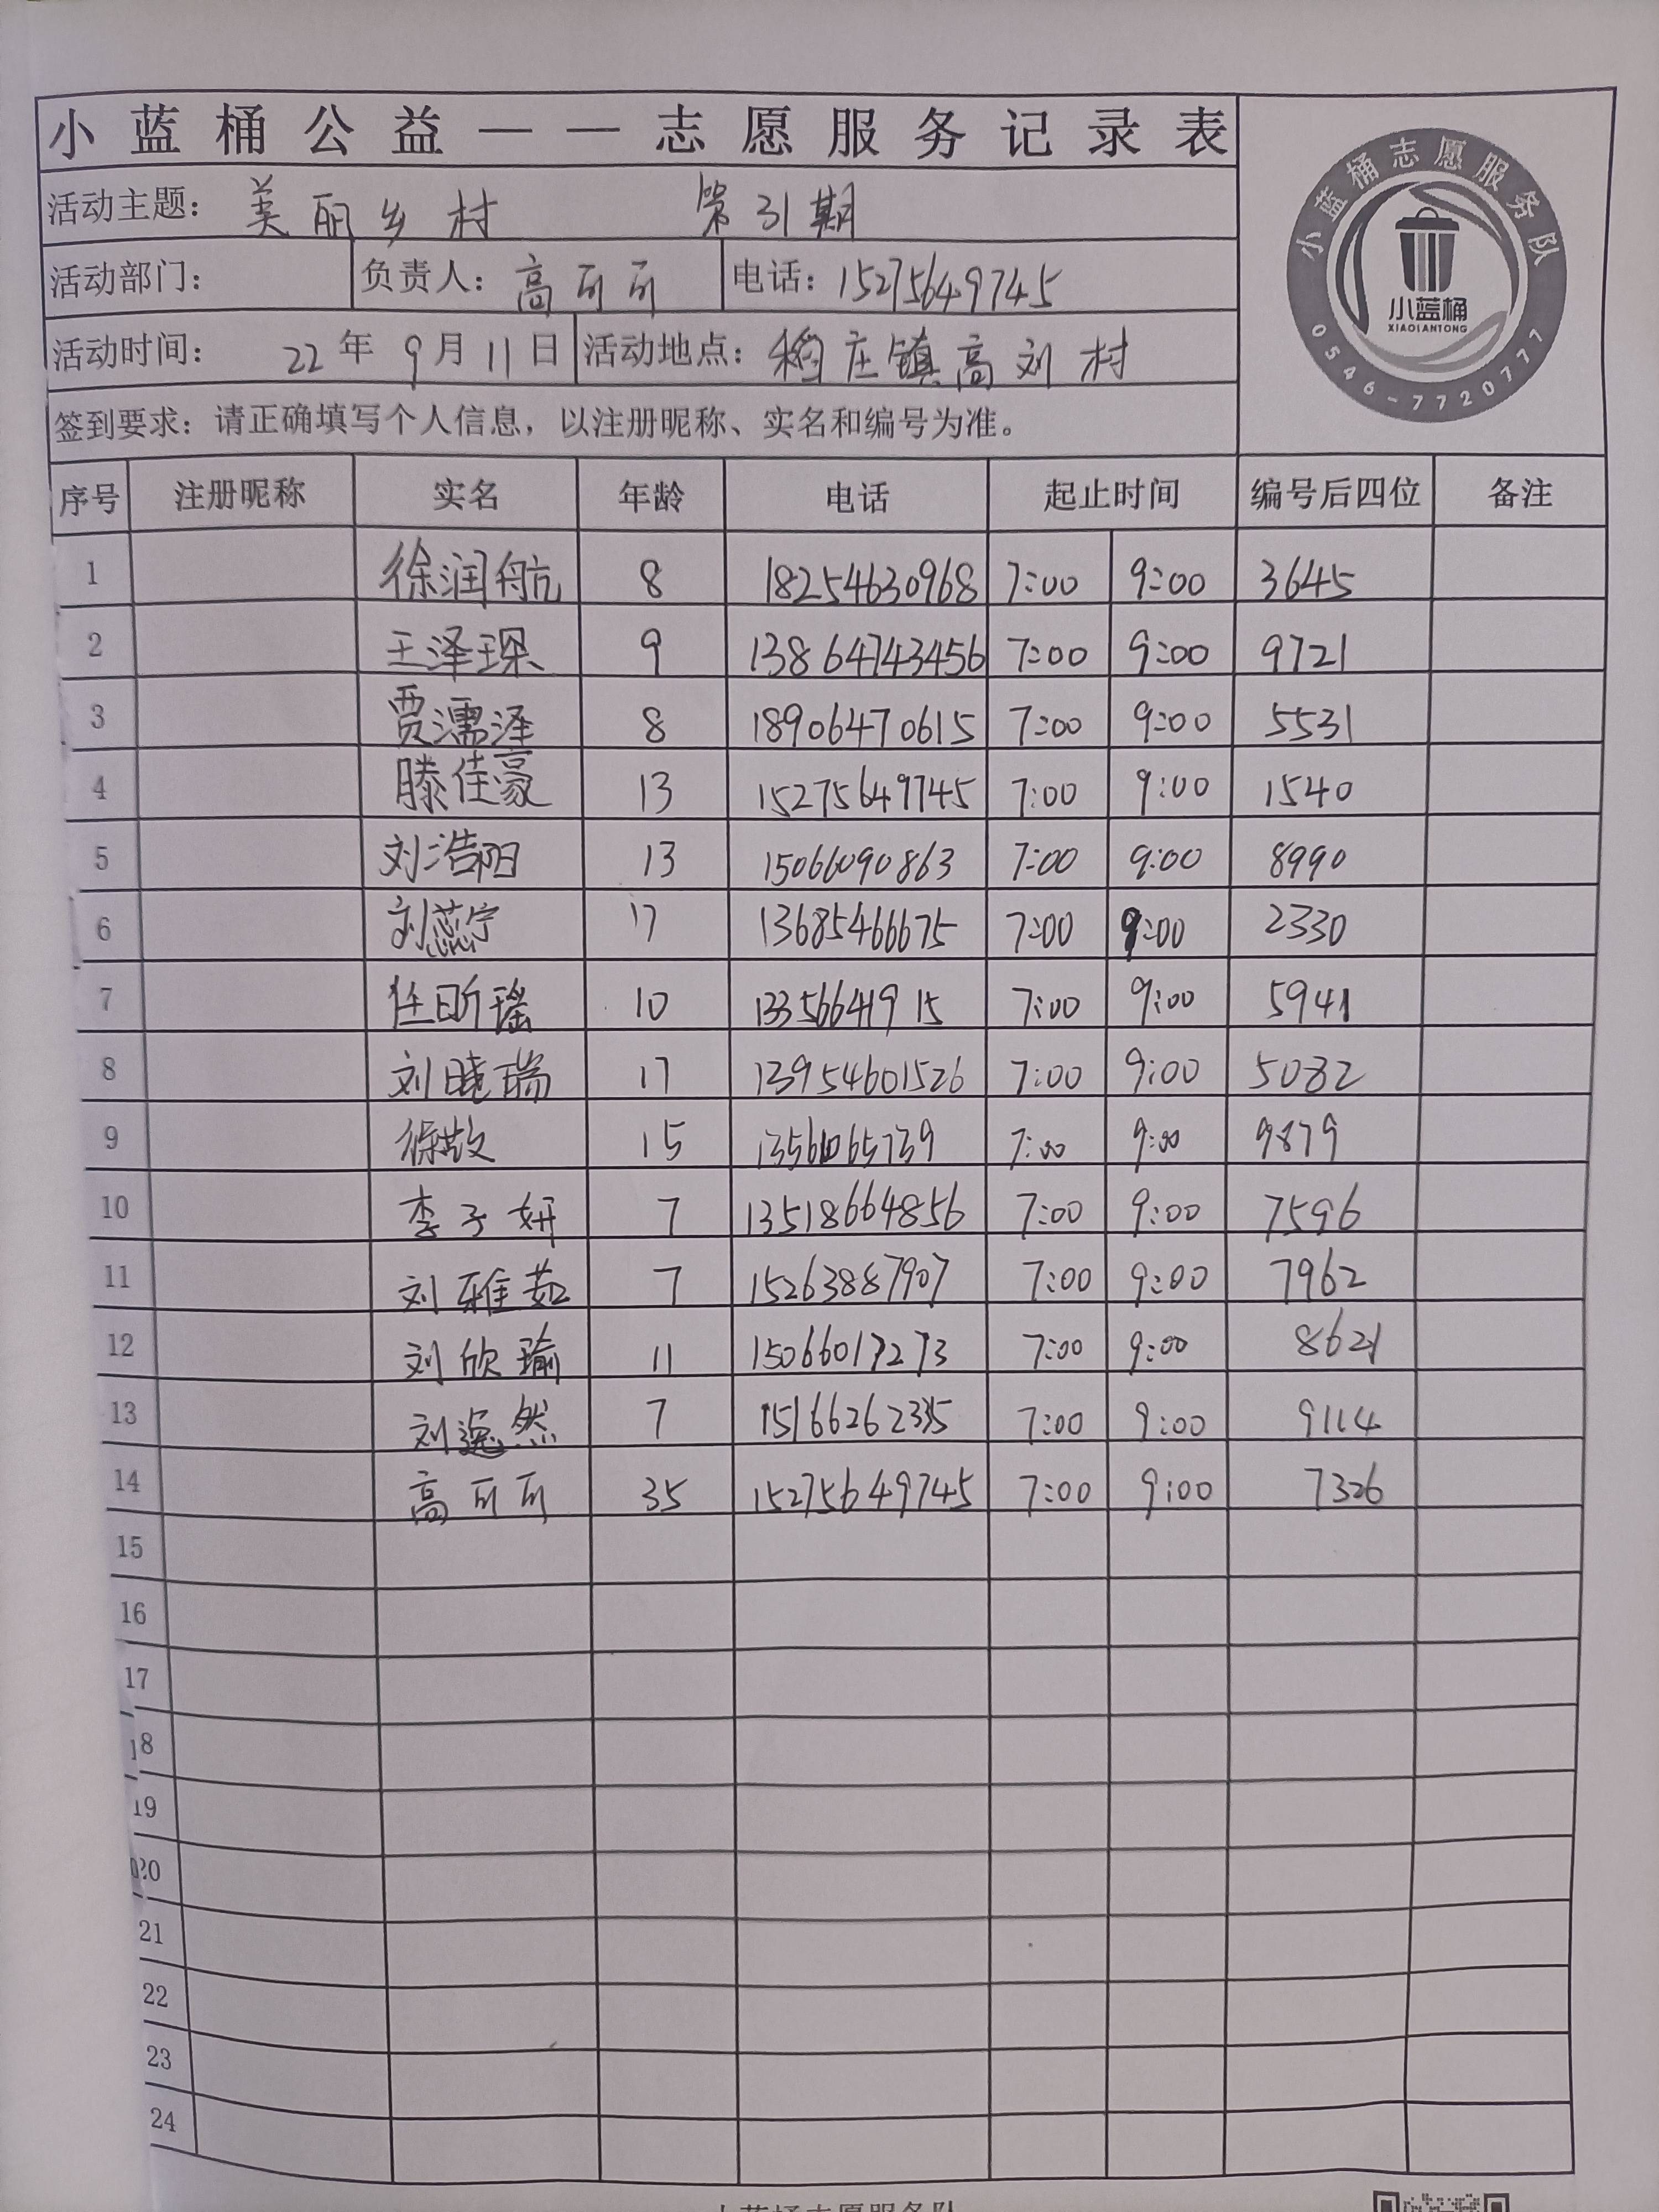 小蓝桶公益——志愿服务记录表
小蓝桶志愿服务队
小蓝桶
XIAOLANTONG
0546-7720777
活动主题: 美丽乡村 第31期
活动部门: 负责人: 高可可 电话: 15275649745
活动时间: 22年9月11日 活动地点: 稻庄镇高刘村
签到要求: 请正确填写个人信息, 以注册昵称、实名和编号为准。
序号 注册昵称 实名 年龄 电话 起止时间 编号后四位 备注
1 徐润航 8 18254630968 7:00 9:00 3645
2 王泽琛 9 13864743456 7:00 9:00 9721
3 贾濡泽 8 18906470615 7:00 9:00 5531
4 滕佳豪 13 15275649745 7:00 9:00 1540
5 刘浩阳 13 15066090863 7:00 9:00 8990
6 刘蕊宁 17 13685466675 7:00 9:00 2330
7 任昕瑶 10 13356641915 7:00 9:00 5941
8 刘晓瑞 17 13954601526 7:00 9:00 5082
9 徐敖 15 13561065739 7:00 9:00 9879
10 李子妍 7 13518664856 7:00 9:00 7596
11 刘雅茹 7 15263887907 7:00 9:00 7962
12 刘欣瑜 11 15066017273 7:00 9:00 8621
13 刘逸然 7 15166262335 7:00 9:00 9114
14 高可可 35 15275649745 7:00 9:00 7326
15
16
17
18
19
20
21
22
23
24
小蓝桶志愿服务队